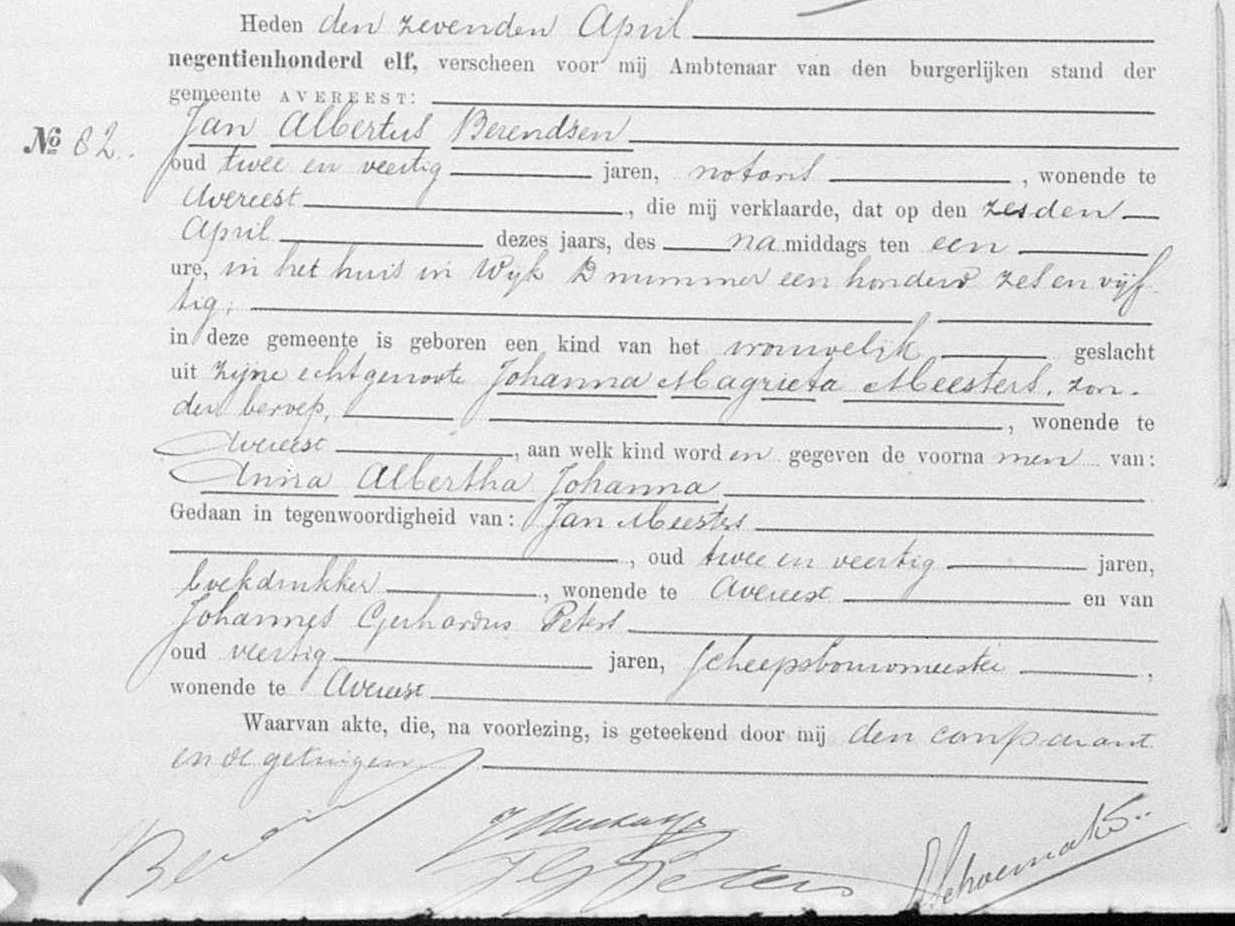 Heden den zevenden April
negentienhonderd elf, verscheen voor mij Ambtenaar van den burgerlijken stand der
gemeente AVEREEST:
Jan Albertus Berendsen
No 82.
oud twee en veertig jaren, notaris, wonende te
Avereest, die mij verklaarde, dat op den zesden
April dezes jaars, des namiddags ten een
ure, in het huis in Wijk B nummer een honderd zes en vijf
tig,
in deze gemeente is geboren een kind van het vrouwelijk geslacht
uit zijne echtgenoote Johanna Magrieta Meesters, zon-
der beroep, wonende te
Avereest, aan welk kind worden gegeven de voornamen van:
Anna Albertha Johanna
Gedaan in tegenwoordigheid van: Jan Meesters
, oud twee en veertig jaren,
boekdrukker, wonende te Avereest en van
Johannes Gerhardus Peters
oud veertig jaren, scheepsbouwmeester,
wonende te Avereest
Waarvan akte, die, na voorlezing, is geteekend door mij den comparant
en de getuigen
J Meesters
J G Peters
Schoemaker